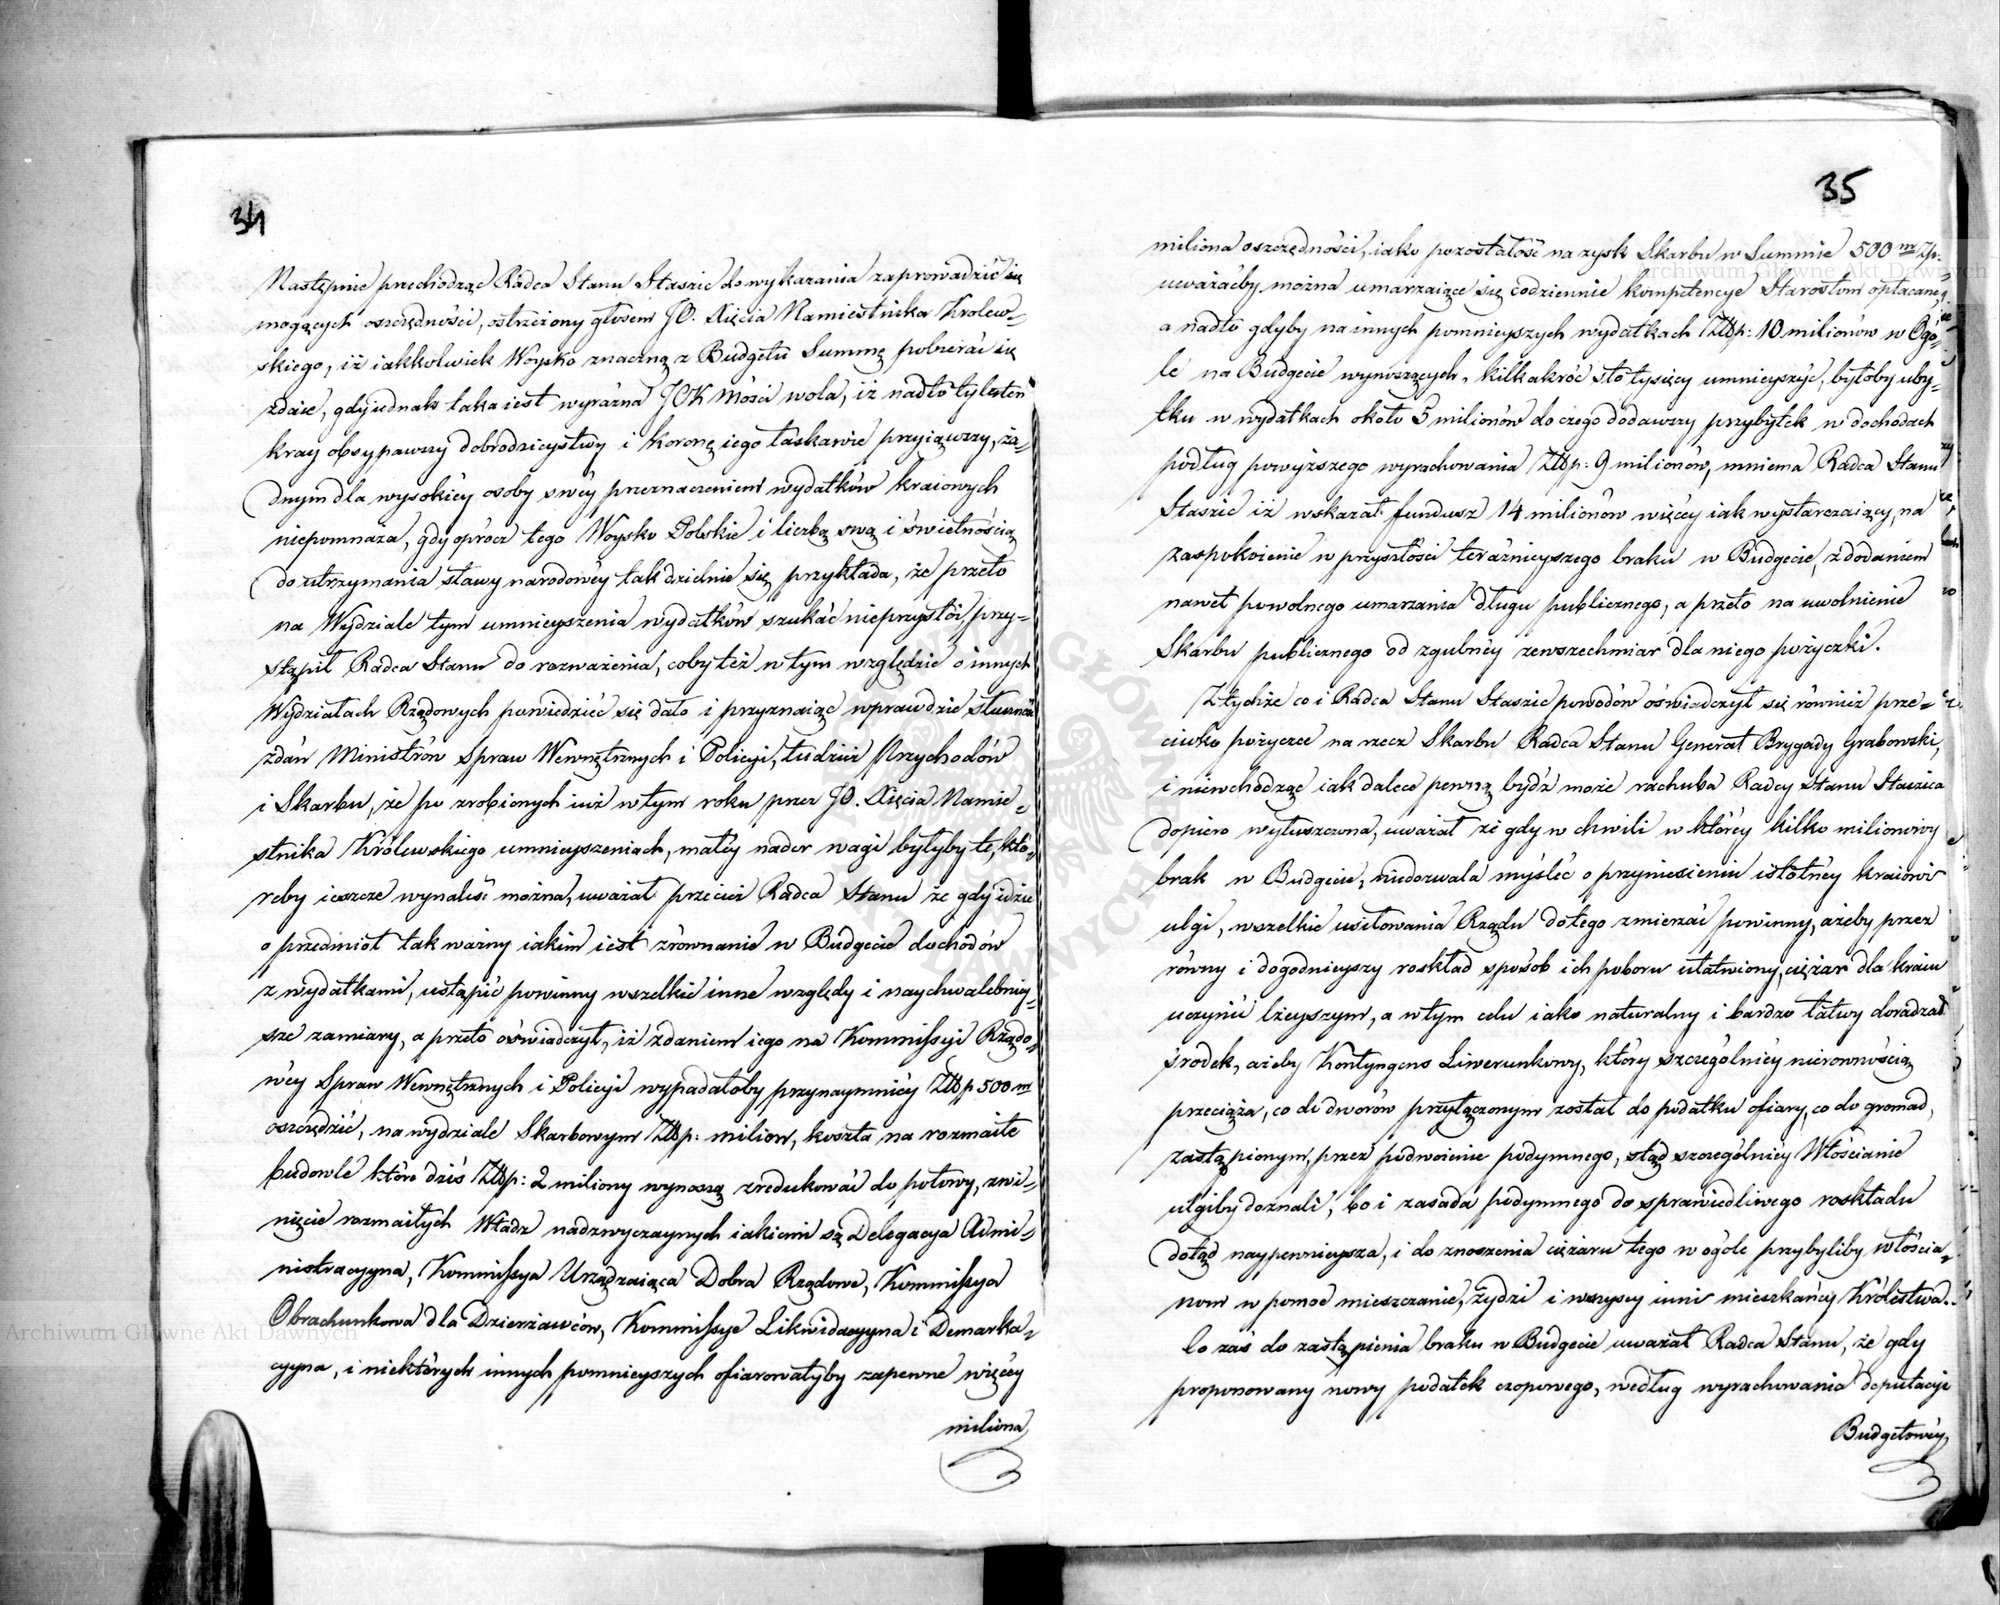 34
Następnie przechodząc Radca Stanu Staszic do wykazania zaprowadzić się
mogących oszczędności, ostrzeżony głosem JO. Xięcia Namiestnika Krolew-
skiego, iż iakkolwiek Woysko znaczną z Budgetu Summę pobierać się
zdaie, gdy iednak taka iest wyraźna JCK Mości wola, iż nadto tyle ten
kray obsypawszy dobrodzieystwy i Koronę iego łaskawie przyiąwszy, ża-
dnym dla wysokiéy osoby swéy przeznaczeniem wydatków kraiowych
niepomnaża, gdy oprócz tego Woysko Polskie i liczbą swą i świetnością
do utrzymania sławy narodowéy tak dzielnie się przykłada, że przeto
na Wydziale tym umnieyszenia wydatków szukać nieprzystoi, przy-
stąpił Radca Stanu do rozważenia, coby też w tym względzie o innych
Wydziałach Rządowych powiedzieć się dało i przyznaiąc wprawdzie słuszność
zdań Ministrów Spraw Wewnętrznych i Policyi, tudzież Przychodów
i Skarbu, że po zrobionych iuż w tym roku przez JO. Xięcia Namie-
stnika Królewskiego umnieyszeniach, małéy nader wagi byłyby te, któ-
reby ieszcze wynaleść można, uważał przecież Radca Stanu że gdy idzie
o przedmiot tak ważny iakim iest zrównanie w Budgecie dochodów
z wydatkami, ustąpić powinny wszelkie inne względy i naychwalebniey-
sze zamiary, a przeto oświadczył, iż zdaniem iego na Kommissyi Rządo-
wéy Spraw Wewnętrznych i Policyi wypadałoby przynaymniéy Złłp 500 m
oszczędzić, na wydziale Skarbowym Złłp: milion, koszta na rozmaite
budowle które dziś Złłp: 2 miliony wynoszą zredukować do połowy, zwi-
nięcie rozmaitych Władz nadzwyczaynych iakiemi są Delegacya Admi-
nistracyyna, Kommissya Urządzaiąca Dobra Rządowe, Kommissya
Obrachunkowa dla Dzierżawców, Kommissye Likwidacyyna i Demarka-
cyyna, i niektórych innych pomnieyszych ofiarowałyby zapewne więcéy
miliona
35
miliona oszczędności, iako pozostałość na zysk Skarbu w Summie 500 m Zp:
uważaćby można umarzaiące się codziennie kompetencye Starostom opłacane,
a nadto gdyby na innych pomnieyszych wydatkach Złłp: 10 milionów w Ogó-
le na Budgecie wynoszących, kilkakroć sto tysięcy umnieyszyć, byłoby uby-
tku w wydatkach około 5 milionów do czego dodawszy przybytek w dochodach
podług powyższego wyrachowania Złłp: 9 milionów, mniema Radca Stanu
Staszic iż wskazał fundusz 14 milionów więcéy iak wystarczaiący, na
zaspokoienie w przyszłości teraznieyszego braku w Budgecie, z dodaniem
nawet powolnego umarzania długu publicznego, a przeto na uwolnienie
Skarbu publicznego od zgubnéy zewszechmiar dla niego pożyczki.
Z tychże co i Radca Stanu Staszic powodów oświadczył się również prze-
ciwko pożyczce na rzecz Skarbu Radca Stanu Generał Brygady Grabowski,
i niewchodząc iak dalece pewną bydź może rachuba Radcy Stanu Staszica
dopiero wyłuszczona, uważał że gdy w chwili w któréy kilko milionowy
brak w Budgecie, niedozwala myśleć o przyniesieniu istotnéy kraiowi
ulgi, wszelkie usiłowania Rządu do tego zmierzać powinny, ażeby przez
równy i dogodnieyszy roskład sposób ich poboru ułatwiony, ciężar dla kraiu
uczynić lżeyszym, a w tym celu iako naturalny i bardzo łatwy doradzał
środek, ażeby Kontyngens Liwerunkowy, który szczególniéy nierównością
przeciąża, co do dworów przyłączonym został do podatku ofiary, co do gromad,
zastąpionym, przez podwoienie podymnego, stąd szczególniéy Włościanie
ulgiby doznali, bo i zasada podymnego do sprawiedliwego roskładu
dotąd naypewnieysza, i do znoszenia ciężaru tego w ogóle przybyliby włościa-
nom w pomoc mieszczanie, żydzi i wszyscy inni mieszkańcy Królestwa.
Co zaś do zastąpienia braku w Budgecie uważał Radca Stanu, że gdy
proponowany nowy podatek czopowego, według wyrachowania deputacyi
Budgetowéy
Archiwum Główne Akt Dawnych
Archiwum Główne Akt Dawnych